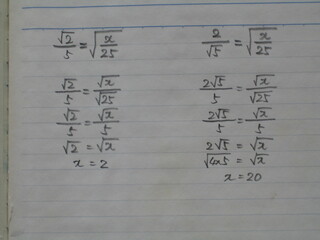 √2/5 = √(x/25)
√2/5 = √x/√25
√2/5 = √x/5
√2 = √x
x = 2
2/√5 = √(x/25)
2√5/5 = √x/√25
2√5/5 = √x/5
2√5 = √x
√(4x5) = √x
x = 20